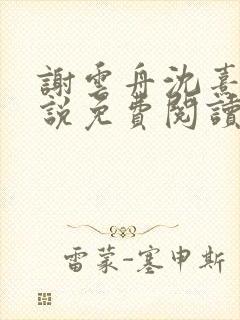 謝雲舟沈熹
說免費閱讀
雷蒙-塞申斯